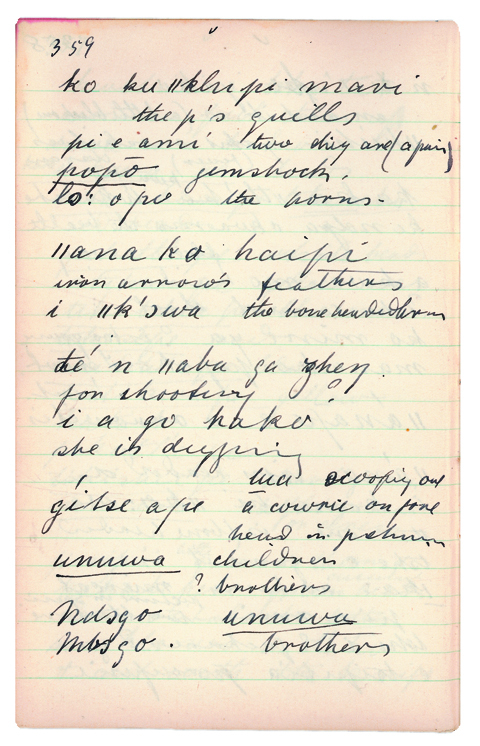 359
ko ku ǁkhupi mavi
the p's quills
pi e ami two they are (a pair)
popō gemsbock.
lo: o pe the horns -
ǁana ko haipi
iron arrow's feathers
i ǁk'swa the bone headed arrow
té n ǁaba ga
for shooting
i a go hako
she is digging
scooping out
gitse a pe ā cowrie on fore
head in
unuwa children
? brothers
Ndsgo unuwa
Mbsgo . brothers